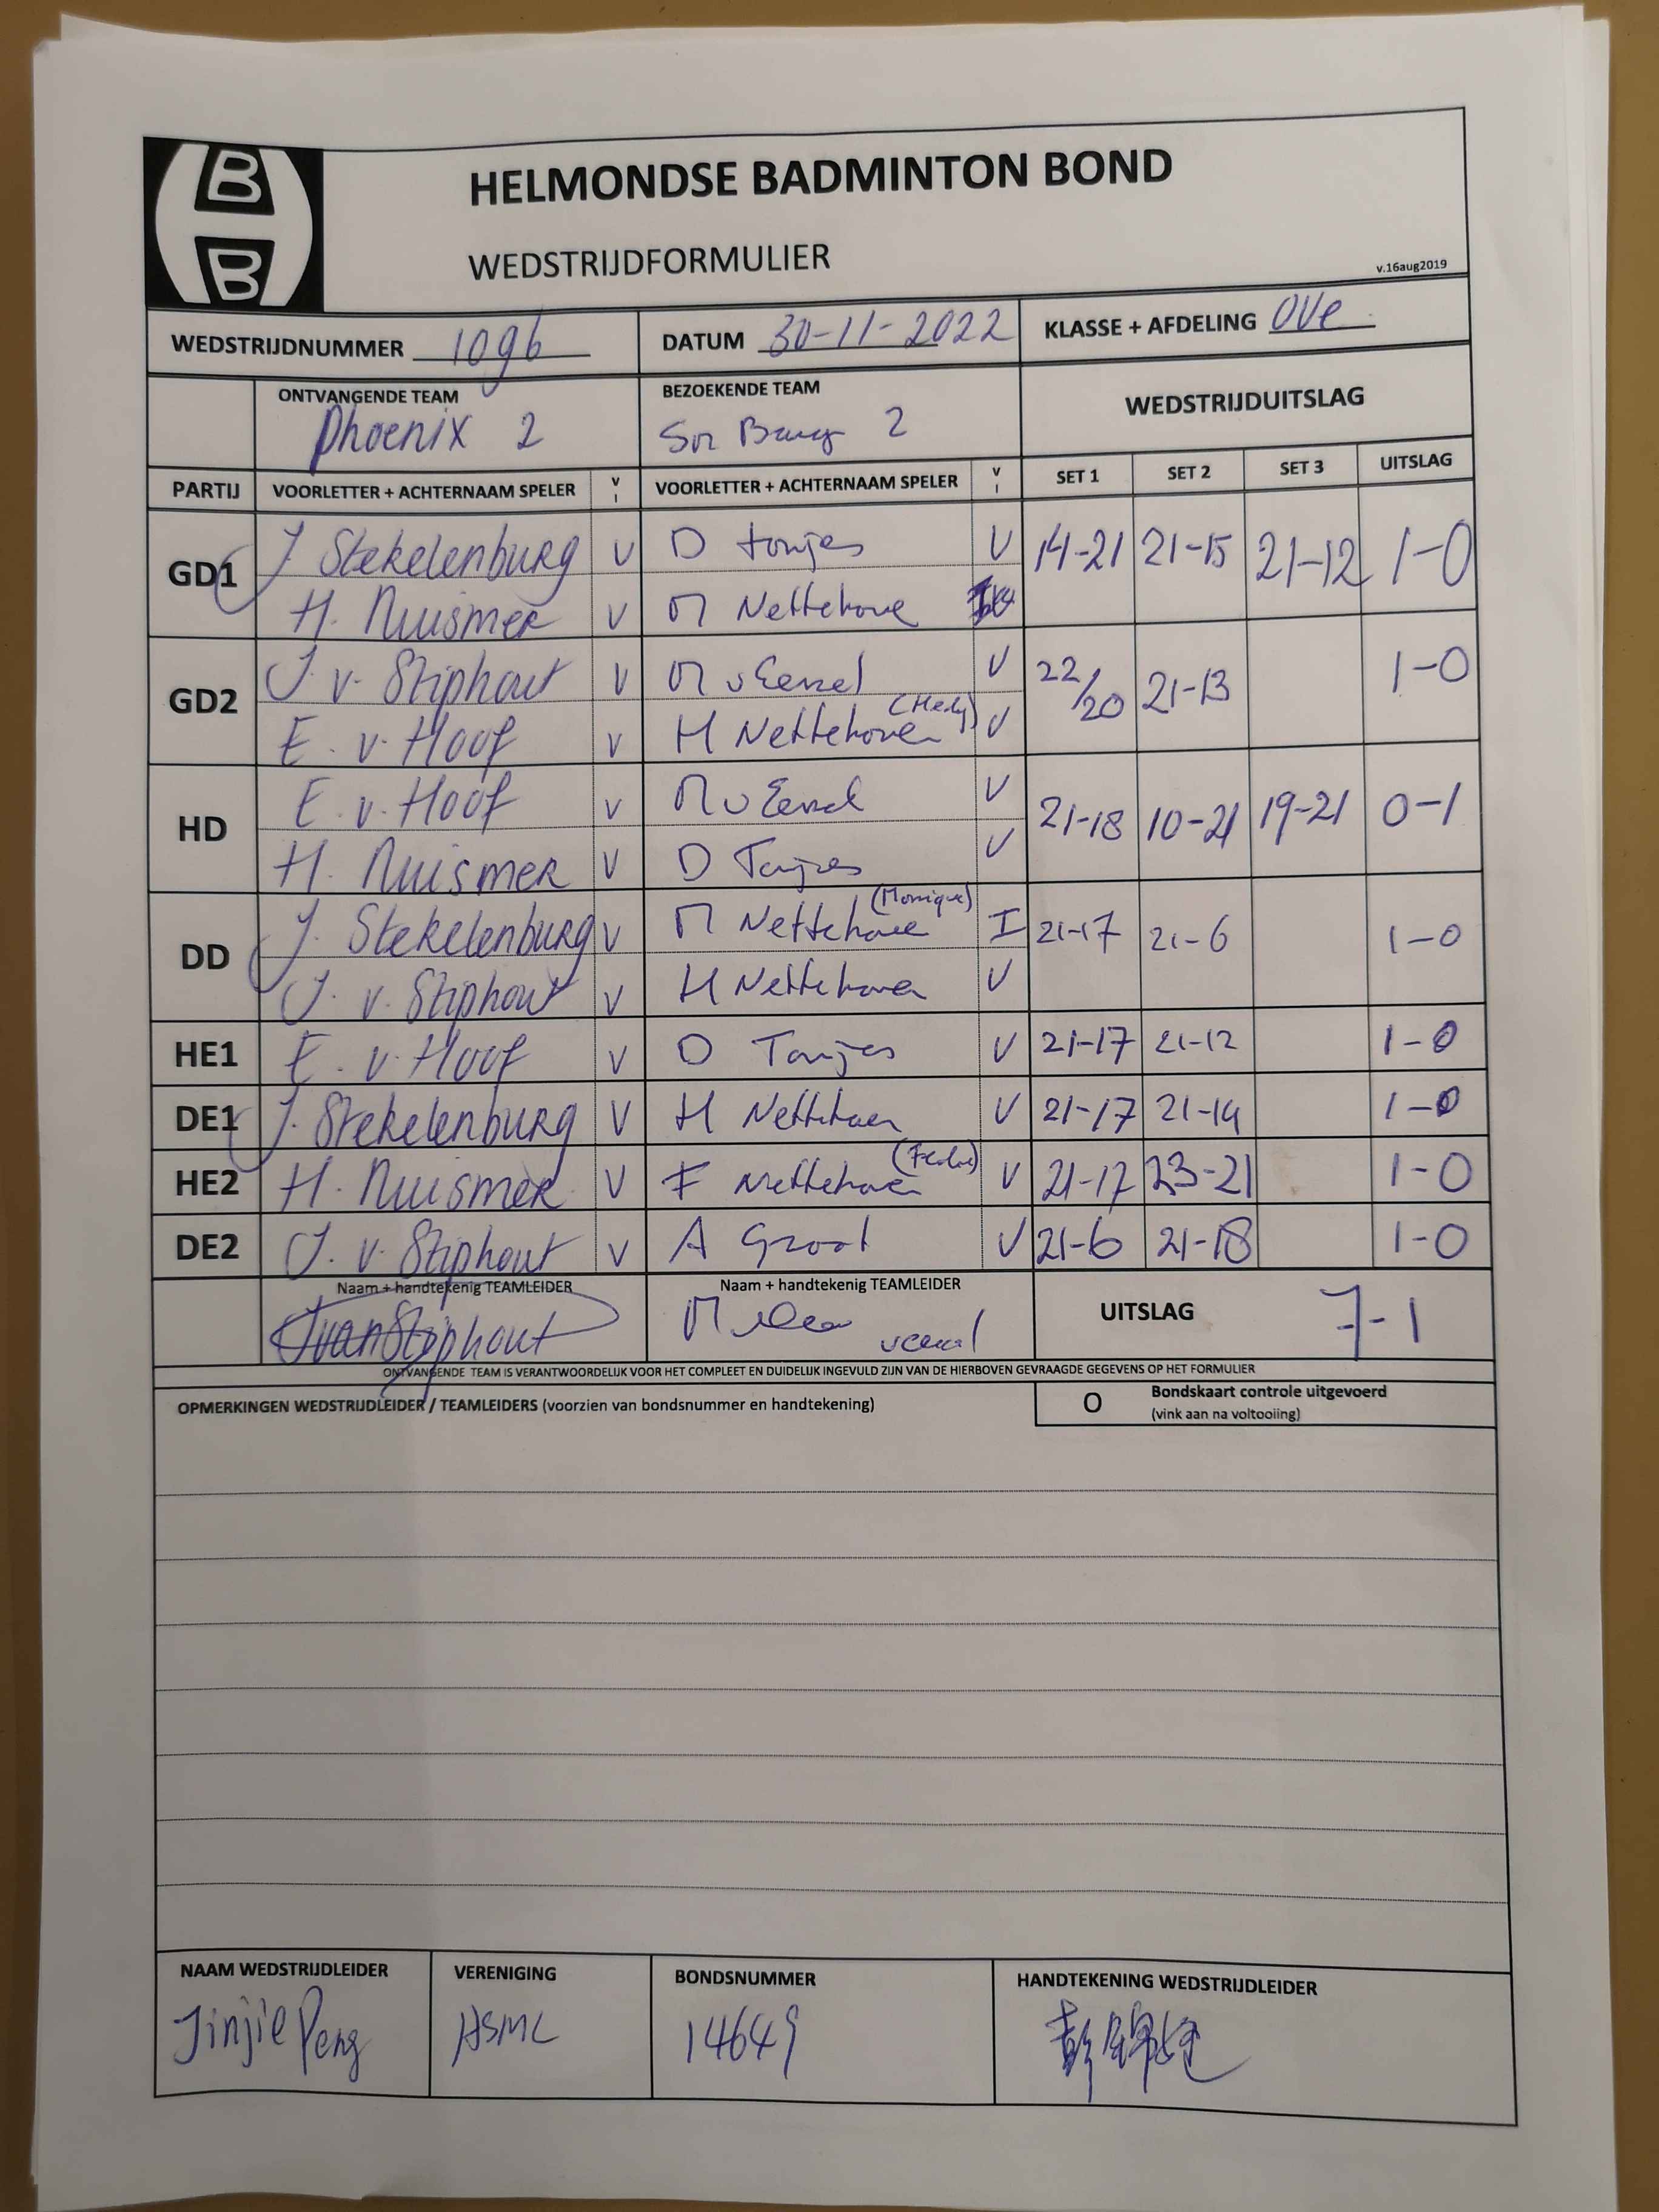 B
B
HELMONDSE BADMINTON BOND
WEDSTRIJDFORMULIER
v.16aug2019
WEDSTRIJDNUMMER 1096 DATUM 30-11-2022 KLASSE + AFDELING OVe
ONTVANGENDE TEAM BEZOEKENDE TEAM WEDSTRIJDUITSLAG
Phoenix 2 2
PARTIJ VOORLETTER + ACHTERNAAM SPELER V I VOORLETTER + ACHTERNAAM SPELER V I SET 1 SET 2 SET 3 UITSLAG
GD1 J Stekelenburg V D Tonjes V 14-21 21-15 21-12 1-0
H. Nuismer V M Nettehove
GD2 J v. Stiphout V M v Eessel V 22/20 21-13 1-0
E. v. Hoof V H Nettehoven (Hedy) V
HD E. v. Hoof V M v Eessel V 21-18 10-21 19-21 0-1
H. Nuismer V D Tonjes V
DD J. Stekelenburg V M Nettehove (Monique) I 21-17 21-6 1-0
J. v. Stiphout V H Nettehoven V
HE1 E. v. Hoof V D Tonjes V 21-17 21-12 1-0
DE1 J. Stekelenburg V H Nettehoven V 21-17 21-14 1-0
HE2 H. Nuismer V F Nettehoven V 21-17 23-21 1-0
DE2 J. v. Stiphout V A Groot V 21-6 21-18 1-0
Naam + handtekenig TEAMLEIDER Naam + handtekenig TEAMLEIDER UITSLAG 7-1
JvanStiphout
ONTVANGENDE TEAM IS VERANTWOORDELIJK VOOR HET COMPLEET EN DUIDELIJK INGEVULD ZIJN VAN DE HIERBOVEN GEVRAAGDE GEGEVENS OP HET FORMULIER
OPMERKINGEN WEDSTRIJDLEIDER / TEAMLEIDERS (voorzien van bondsnummer en handtekening) O Bondskaart controle uitgevoerd
(vink aan na voltooiing)
NAAM WEDSTRIJDLEIDER VERENIGING BONDSNUMMER HANDTEKENING WEDSTRIJDLEIDER
Jinjie Peng ASML 14649 彭锦